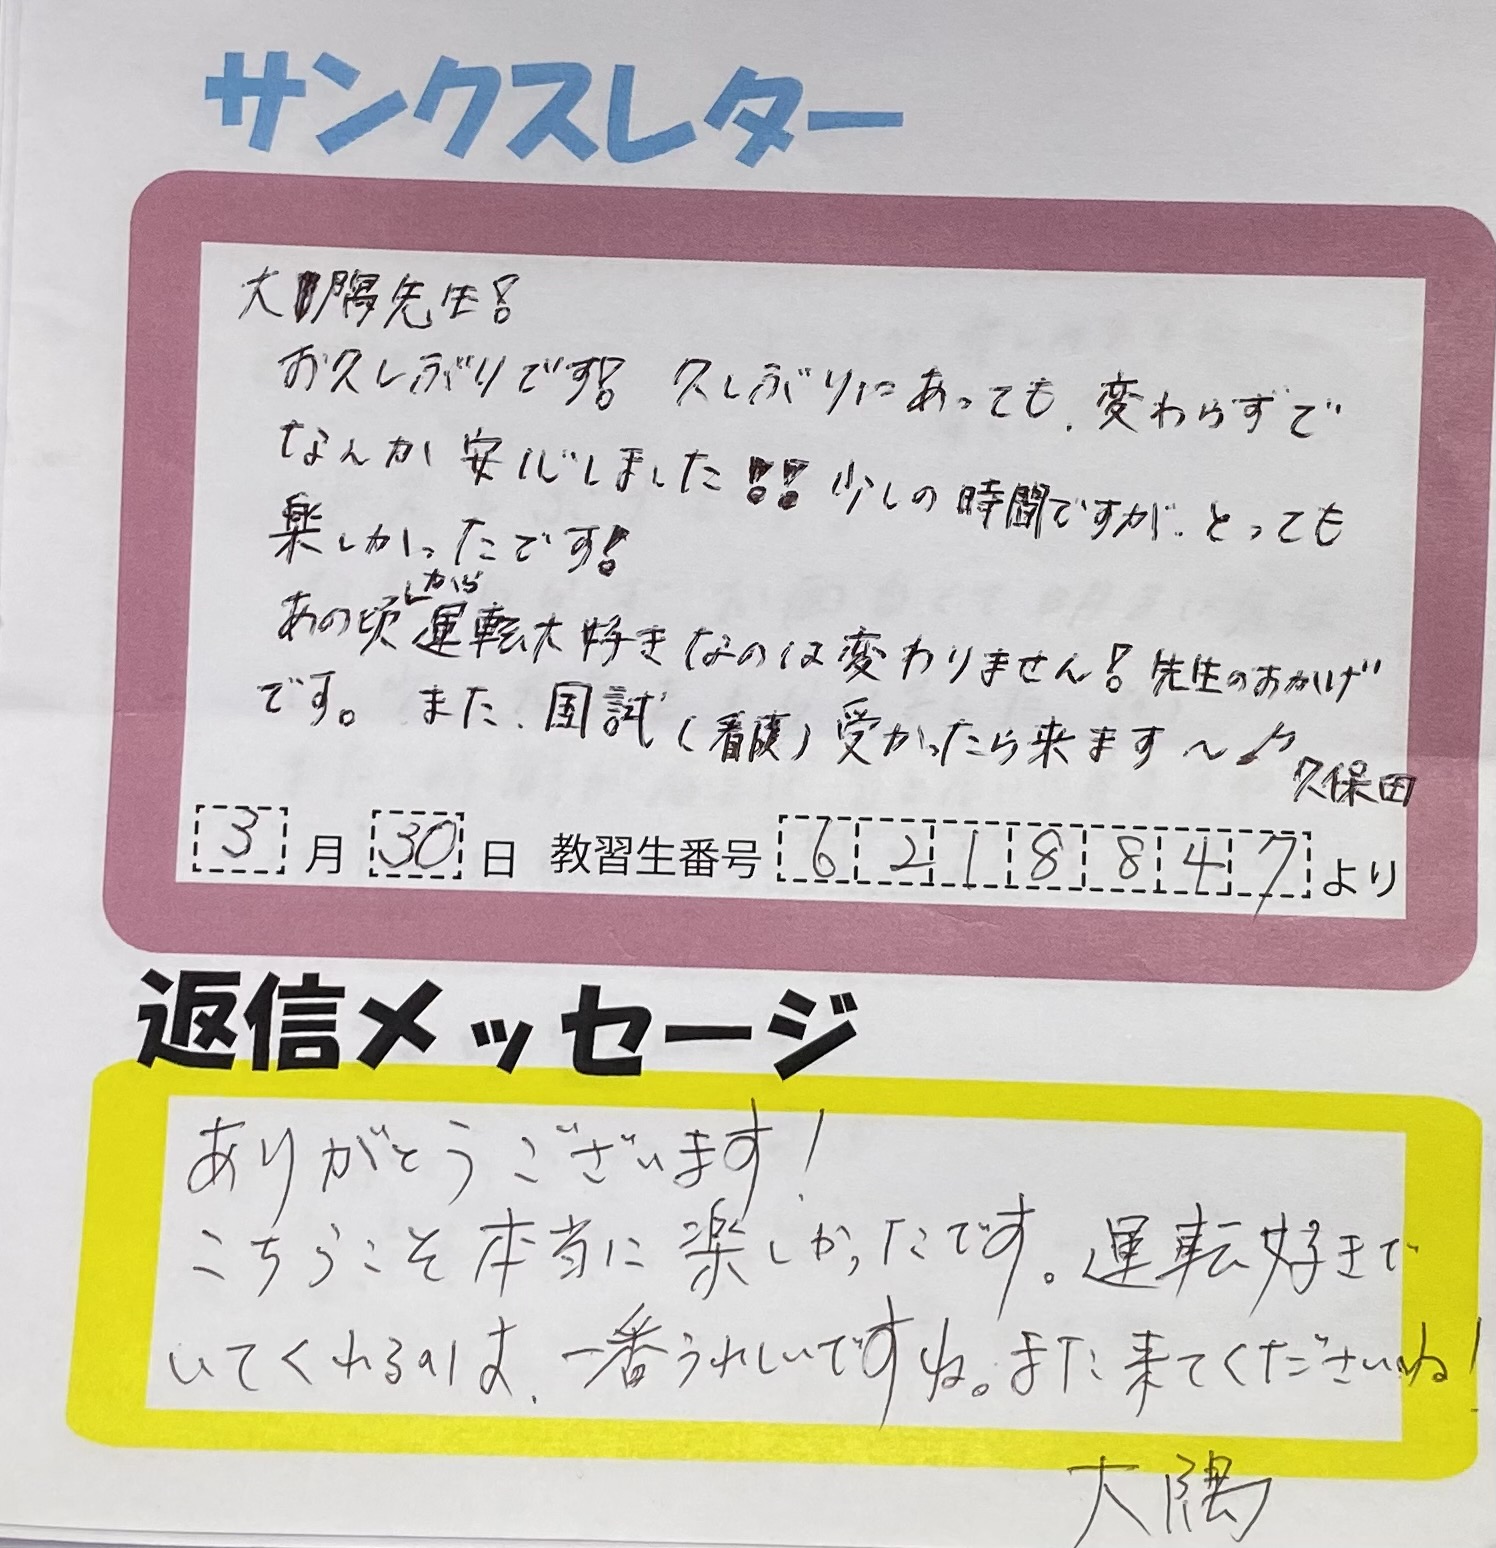 サンクスレター
大隅先生!
お久しぶりです! 久しぶりにあっても、変わらずで
なんか安心しました!! 少しの時間ですが、とっても
楽しかったです!
あの頃から運転大好きなのは変わりません! 先生のおかげ
です。また、国試(看護)受かったら来ます〜♪
久保田
3月30日 教習生番号 6218847より
返信メッセージ
ありがとうございます!
こちらこそ本当に楽しかったです。運転好きで
いてくれるのは、一番うれしいですね。また来てくださいね!
大隅